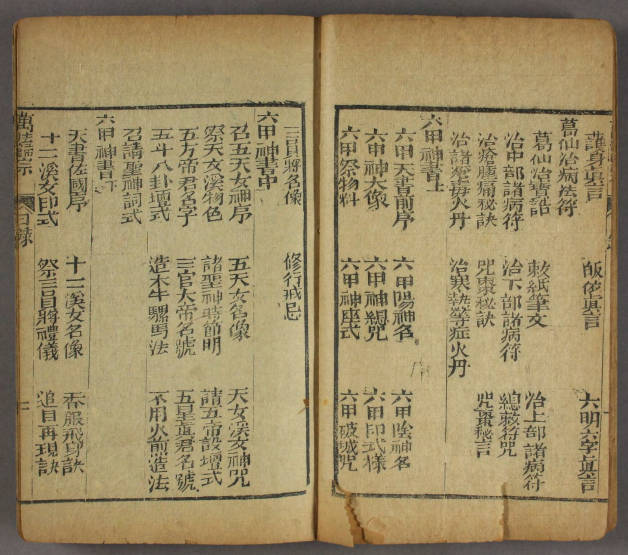 護身真言 皈依真言 六明六字真言
葛仙治病法符
葛仙治寶誥 敕紙筆文 治上部諸病符
治中部諸病符 治下部諸病符 總敕符咒
治瘡腫痛秘訣 咒棗秘訣 咒棗秘言
治諸瘡毒火丹 治寒熱等症火丹
六甲神書上
六甲天書前序 六甲陽神名 六甲陰神名
六甲神大像 六甲神總咒 六甲印式樣
六甲祭物料 六甲神座式 六甲破城咒
三員將名像 修行戒忌
六甲神書中
召五天女神序 五天女名像 天女溪女神咒
祭天女溪物色 諸聖神時節明 請五帝設壇式
五方帝君名字 三官大帝名號 五星真君名號
五斗八卦壇式 造木牛騾馬法 不用火煎造法
召請聖神詞式
六甲神書下
天書佐國序 十二溪女名像 香服飛印訣
十二溪女印式 祭三員將禮儀 追目再現訣
目錄